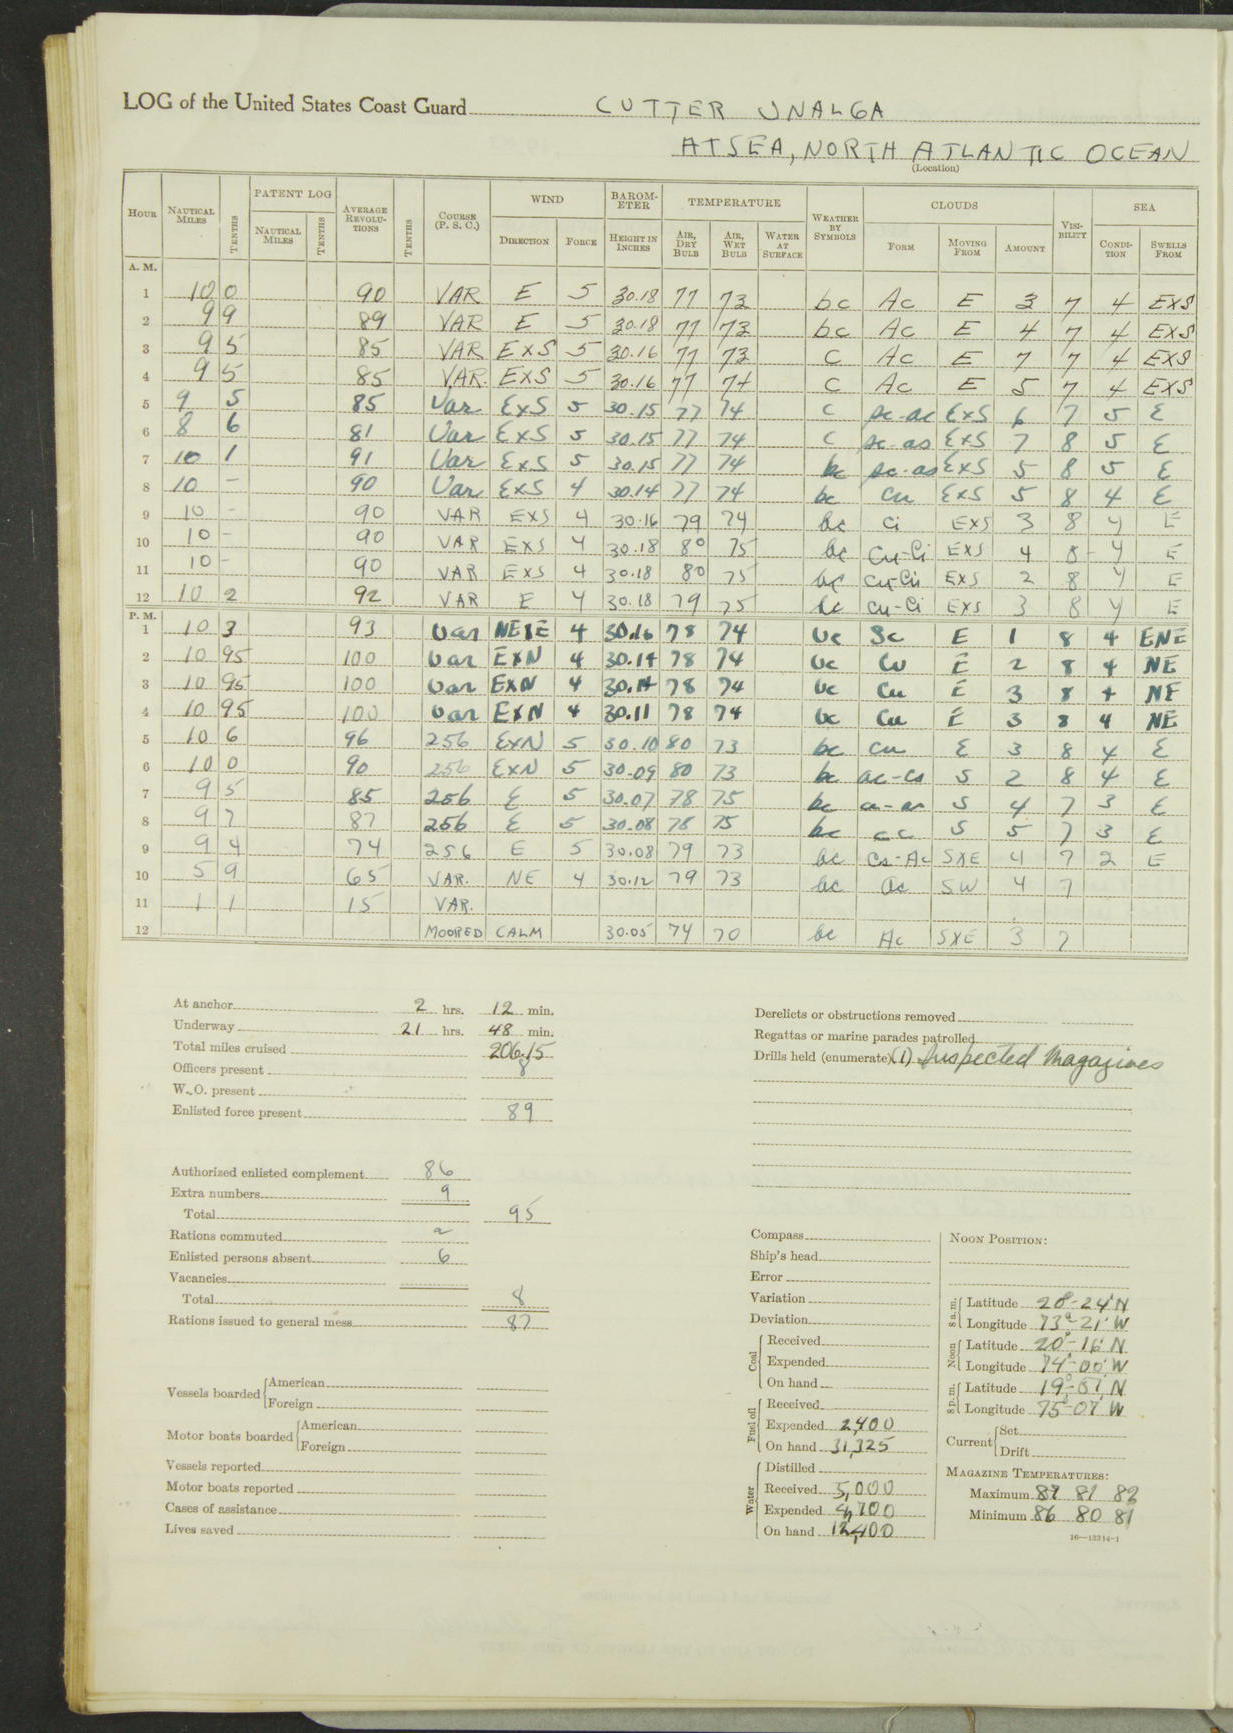 LOG of the United States Coast Guard CUTTER UNALGA
AT SEA, NORTH ATLANTIC OCEAN
(Location)
HOUR NAUTICAL MILES TENTHS PATENT LOG NAUTICAL MILES TENTHS AVERAGE REVOLUTIONS TENTHS COURSE (P. S. C.) WIND DIRECTION FORCE BAROMETER HEIGHT IN INCHES TEMPERATURE AIR, DRY BULB AIR, WET BULB WATER AT SURFACE WEATHER BY SYMBOLS CLOUDS FORM MOVING FROM AMOUNT VISIBILITY SEA CONDITION SWELLS FROM
A. M.
1 10 0 90 VAR E 5 30.18 77 73 bc Ac E 3 7 4 EXS
2 9 9 89 VAR E 5 30.18 77 73 bc Ac E 4 7 4 EXS
3 9 5 85 VAR EXS 5 30.16 77 73 C Ac E 7 7 4 EXS
4 9 5 85 VAR. EXS 5 30.16 77 74 C Ac E 5 7 4 EXS
5 9 5 85 Var EXS 5 30.15 77 74 C sc-ac EXS 6 7 5 E
6 8 6 81 Var EXS 5 30.15 77 74 C sc-as EXS 7 8 5 E
7 10 1 91 Var EXS 5 30.15 77 74 bc sc-as EXS 5 8 5 E
8 10 - 90 Var EXS 4 30.14 77 74 bc cu EXS 5 8 4 E
9 10 - 90 VAR EXS 4 30.16 79 74 bc Ci EXS 3 8 4 E
10 10 - 90 VAR EXS 4 30.18 80 75 bc Cu-Ci EXS 4 8 4 E
11 10 - 90 VAR EXS 4 30.18 80 75 bc Cu-Ci EXS 2 8 4 E
12 10 2 92 VAR E 4 30.18 79 75 bc Cu-Ci EXS 3 8 4 E
P. M.
1 10 3 93 Var 4 30.16 78 74 bc Sc E 1 8 4 ENE
2 10 95 100 Var EXN 4 30.14 78 74 bc Cu E 2 8 4 NE
3 10 95 100 Var EXN 4 30.14 78 74 bc Cu E 3 8 4 NE
4 10 95 100 Var EXN 4 30.11 78 74 bc Cu E 3 8 4 NE
5 10 6 96 256 EXN 5 30.10 80 73 bc cu E 3 8 4 E
6 10 0 90 256 EXN 5 30.09 80 73 bc ac-cs S 2 8 4 E
7 9 5 85 256 E 5 30.07 78 75 bc S 4 7 3 E
8 9 7 87 256 E 5 30.08 78 75 bc cc S 5 7 3 E
9 9 4 74 256 E 5 30.08 79 73 bc Cs-Ac SXE 4 7 2 E
10 5 9 65 VAR. NE 4 30.12 79 73 bc Ac SW 4 7
11 1 1 15 VAR.
12 MOORED CALM 30.05 74 70 bc Ac SXE 3 7
At anchor 2 hrs. 12 min.
Underway 21 hrs. 48 min.
Total miles cruised 206.15
Officers present 8
W. O. present
Enlisted force present 89
Authorized enlisted complement 86
Extra numbers 9
Total 95
Rations commuted 2
Enlisted persons absent 6
Vacancies
Total 8
Rations issued to general mess 87
Vessels boarded American
Foreign
Motor boats boarded American
Foreign
Vessels reported
Motor boats reported
Cases of assistance
Lives saved
Derelicts or obstructions removed
Regattas or marine parades patrolled
Drills held (enumerate) (1) Inspected Magazines
Compass
Ship's head
Error
Variation
Deviation
Coal Received
Expended
On hand
Fuel oil Received
Expended 2,400
On hand 31,325
Water Distilled
Received 5,000
Expended 4,700
On hand 12,400
NOON POSITION:
8 a.m. Latitude 20°-24'N
Longitude 73°-21' W
Noon Latitude 20°-16' N
Longitude 74°-00' W
8 p.m. Latitude 19°-51' N
Longitude 75°-07' W
Current Set
Drift
MAGAZINE TEMPERATURES:
Maximum 87 81 82
Minimum 86 80 81
16—13214-1